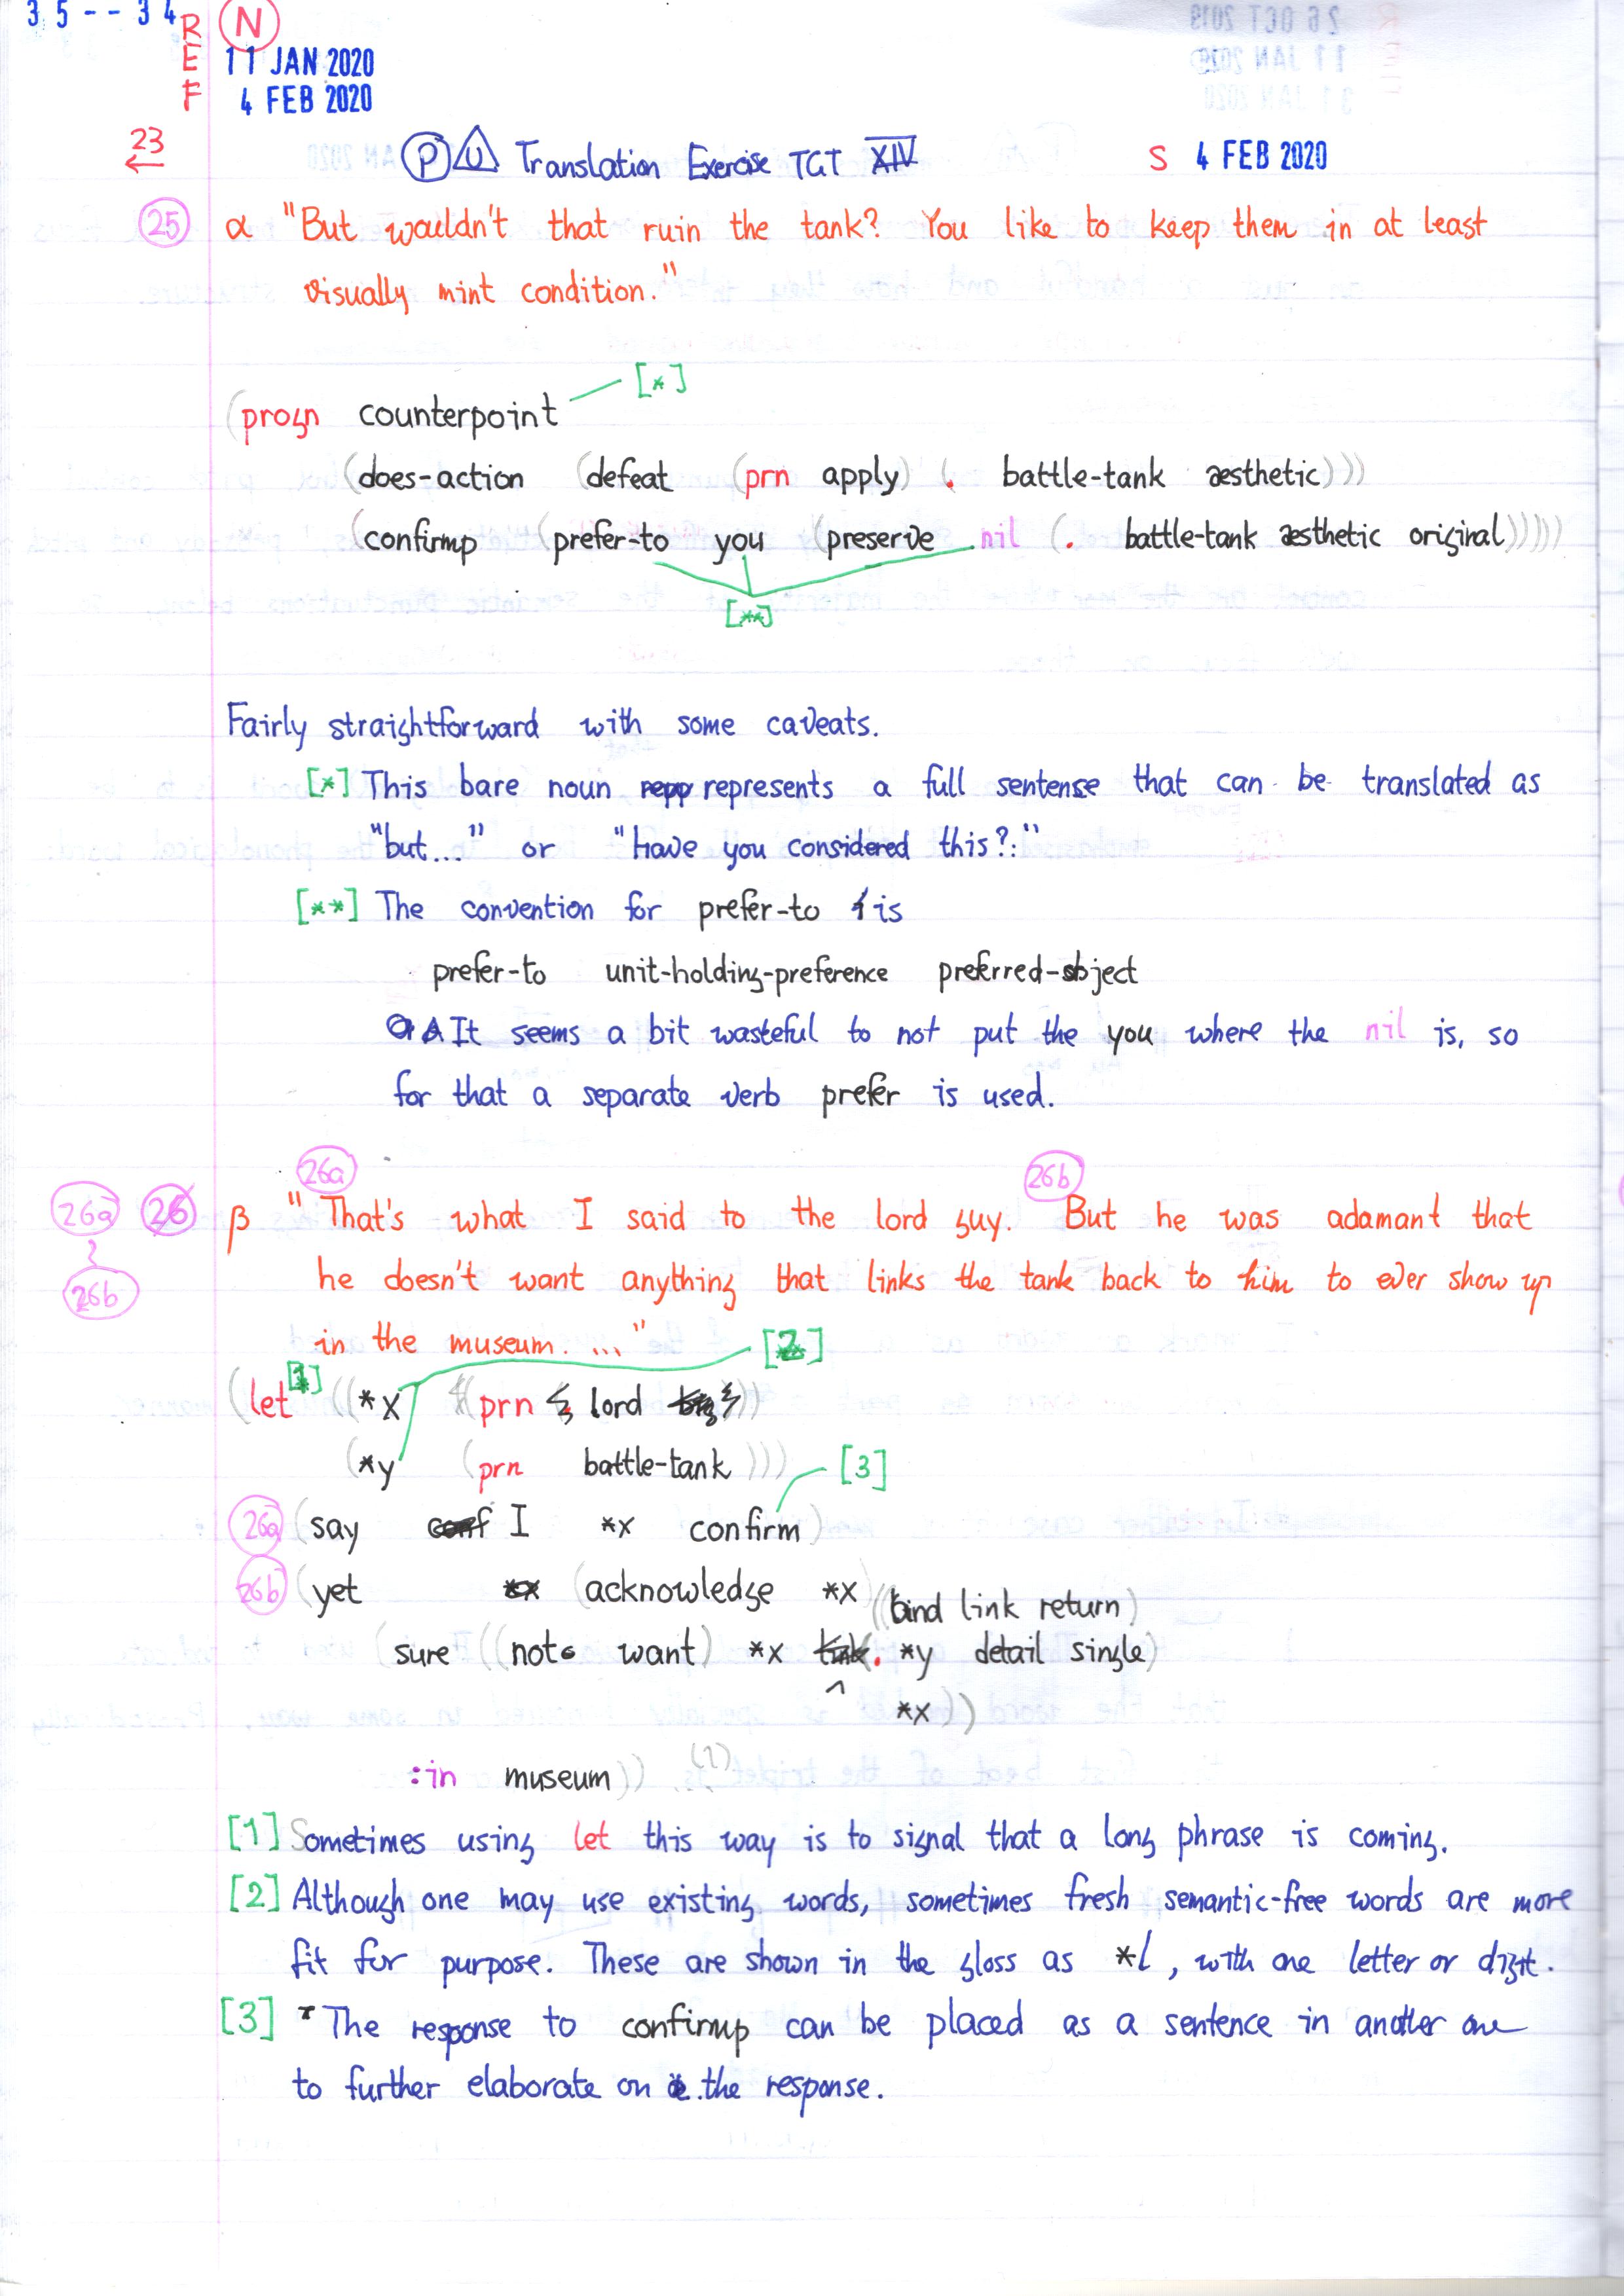 35--34
REF
N
11 JAN 2020
4 FEB 2020
23
←
P U Translation Exercise TGT XIV
S 4 FEB 2020
25 α "But wouldn't that ruin the tank? You like to keep them in at least
visually mint condition."
[*]
(progn counterpoint
(does-action (defeat (prn apply) (. battle-tank æsthetic)))
(confirmp (prefer-to you (preserve nil (. battle-tank æsthetic original)))))
[**]
Fairly straightforward with some caveats.
[*] This bare noun represents a full sentence that can be translated as
"but..." or "have you considered this?:"
[**] The convention for prefer-to is
prefer-to unit-holding-preference preferred-object
It seems a bit wasteful to not put the you where the nil is, so
for that a separate verb prefer is used.
26a 26b
26a 26 β "That's what I said to the lord guy. But he was adamant that
26b he doesn't want anything that links the tank back to him to ever show up
in the museum. ..." [2]
(let [1] ((*x (prn lord))
(*y (prn battle-tank))) [3]
26a (say I *x confirm)
26b (yet (acknowledge *x
((bind link return)
sure ((not want) *x . *y detail single)
*x))
:in museum)) (1)
[1] Sometimes using let this way is to signal that a long phrase is coming.
[2] Although one may use existing words, sometimes fresh semantic-free words are more
fit for purpose. These are shown in the gloss as *l, with one letter or digit.
[3] The response to confirmp can be placed as a sentence in another one
to further elaborate on the response.